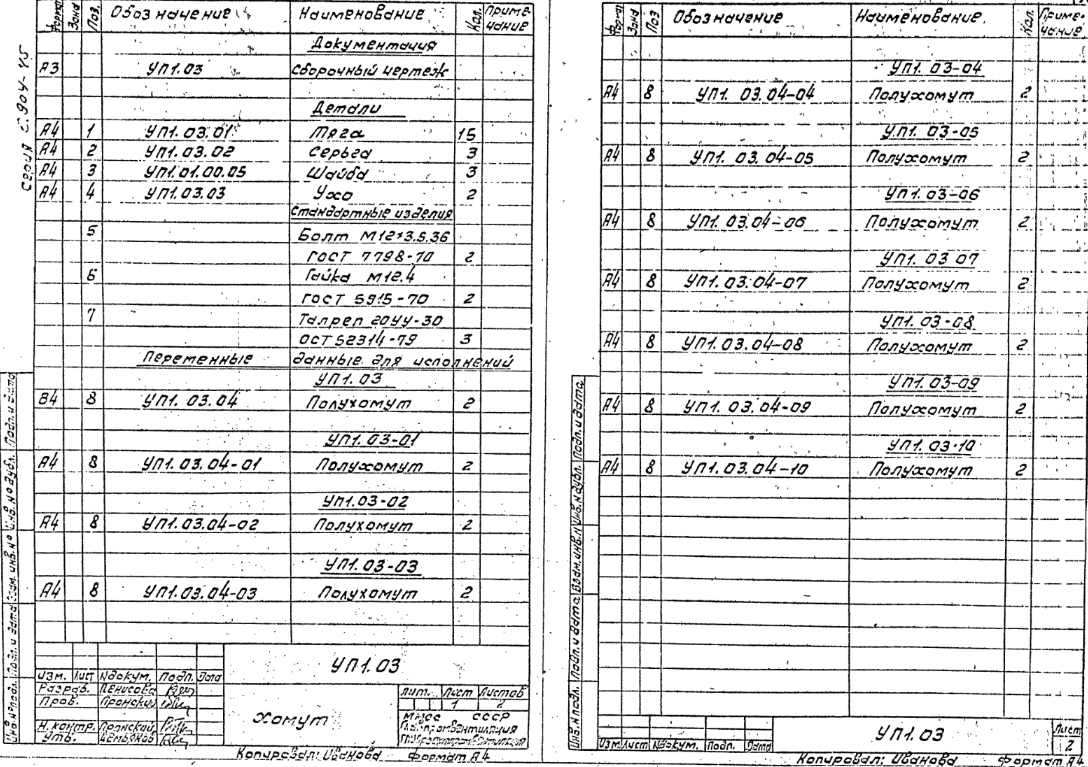 Формат Зона Поз. Обозначение Наименование Кол. Приме-чание
Документация
А3 УП1.03 Сборочный чертеж
Детали
А4 1 УП1.03.01 Тяга 15
А4 2 УП1.03.02 Серьга 3
А4 3 УП1.01.00.05 Шайба 3
А4 4 УП1.03.03 Ухо 2
Стандартные изделия
5 Болт М12×3.5.36
ГОСТ 7798-70 2
6 Гайка М12.4
ГОСТ 5915-70 2
7 Талреп 20УУ-30
ОСТ 52314-79 3
Переменные данные для исполнений
УП1.03
В4 8 УП1.03.04 Полухомут 2
УП1.03-01
А4 8 УП1.03.04-01 Полухомут 2
УП1.03-02
А4 8 УП1.03.04-02 Полухомут 2
УП1.03-03
А4 8 УП1.03.04-03 Полухомут 2
УП1.03
Изм. Лист №докум. Подп. Дата
Разраб. Денисова
Пров. Пронский
Н.контр.
Утв.
Хомут
Лит. Лист Листов
1 2
СССР
Копировал: Иванова Формат А4
Серия 5.904-45
Инв.№подл. Подп. и дата Взам. инв.№ Инв.№дубл. Подп. и дата
Формат Зона Поз Обозначение Наименование. Кол. Приме-чание
УП1.03-04
А4 8 УП1.03.04-04 Полухомут 2
УП1.03-05
А4 8 УП1.03.04-05 Полухомут 2
УП1.03-06
А4 8 УП1.03.04-06 Полухомут 2
УП1.03 07
А4 8 УП1.03.04-07 Полухомут 2
УП1.03-08
А4 8 УП1.03.04-08 Полухомут 2
УП1.03-09
А4 8 УП1.03.04-09 Полухомут 2
УП1.03-10
А4 8 УП1.03.04-10 Полухомут 2
Инв.№подл. Подп. и дата Взам.инв.№ Инв.№дубл. Подп.и дата
Изм Лист №докум. Подп. Дата
УП1.03
Лист
2
Копировал: Иванова Формат А4